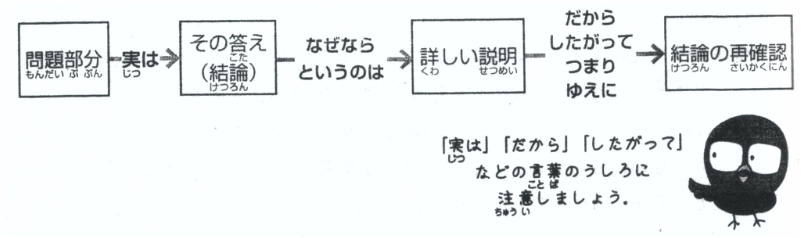 問題部分
もんだい ぶ ぶん
実は
じつ
その答え
こた
(結論)
けつろん
なぜなら
というのは
詳しい説明
くわ せつめい
だから
したがって
つまり
ゆえに
結論の再確認
けつろん さいかくにん
「実は」「だから」「したがって」
じつ
などの言葉のうしろに
ことば
注意しましょう。
ちゅうい